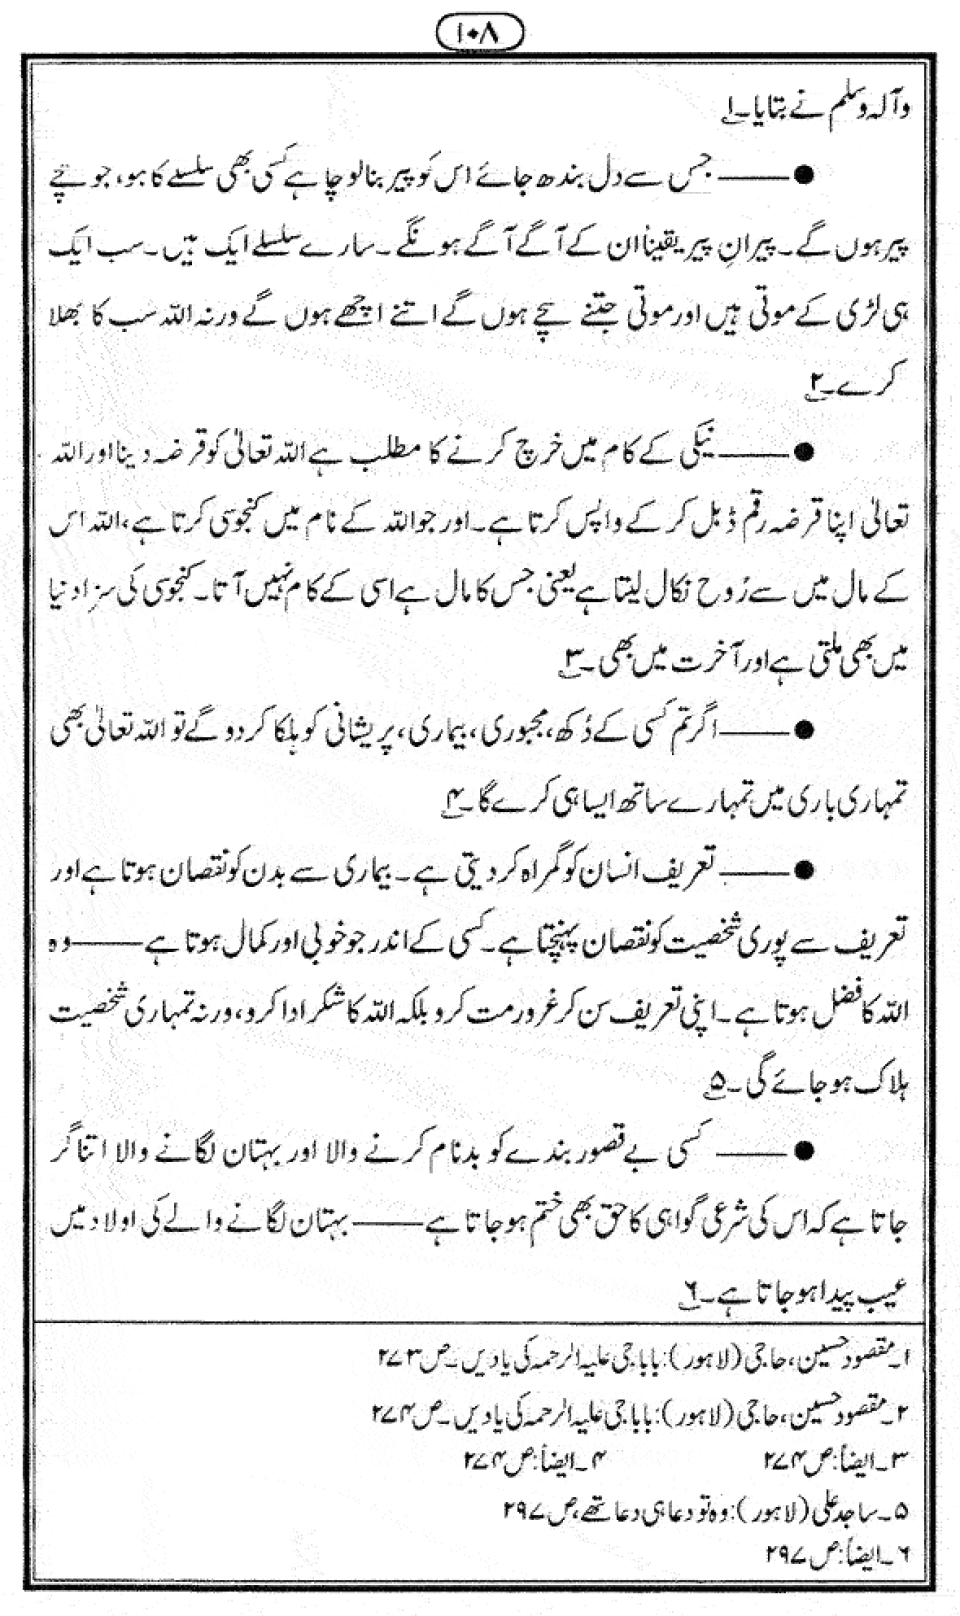 ۱۰۸
وآلہ وسلم نے بتایا۔۱
●——— جس سے دل بندھ جائے اس کو پیر بنا لو چاہے کسی بھی سلسلے کا ہو، جو سچے
پیر ہوں گے۔ پیرانِ پیر یقیناً ان کے آگے آگے ہونگے۔ سارے سلسلے ایک ہیں۔ سب ایک
ہی لڑی کے موتی ہیں اور موتی جتنے سچے ہوں گے اتنے اچھے ہوں گے ورنہ اللہ سب کا بھلا
کرے۔۲
●——— نیکی کے کام میں خرچ کرنے کا مطلب ہے اللہ تعالیٰ کو قرضہ دینا اور اللہ
تعالیٰ اپنا قرضہ رقم ڈبل کر کے واپس کرتا ہے۔ اور جو اللہ کے نام میں کنجوسی کرتا ہے، اللہ اس
کے مال میں سے رُوح نکال لیتا ہے یعنی جس کا مال ہے اسی کے کام نہیں آتا۔ کنجوسی کی سزا دنیا
میں بھی ملتی ہے اور آخرت میں بھی۔۳
●——— اگر تم کسی کے دُکھ، مجبوری، بیماری، پریشانی کو ہلکا کر دو گے تو اللہ تعالیٰ بھی
تمہاری باری میں تمہارے ساتھ ایسا ہی کرے گا۔۴
●——— تعریف انسان کو گمراہ کر دیتی ہے۔ بیماری سے بدن کو نقصان ہوتا ہے اور
تعریف سے پوری شخصیت کو نقصان پہنچتا ہے۔ کسی کے اندر جو خوبی اور کمال ہوتا ہے——— وہ
اللہ کا فضل ہوتا ہے۔ اپنی تعریف سن کر غرور مت کرو بلکہ اللہ کا شکر ادا کرو، ورنہ تمہاری شخصیت
ہلاک ہو جائے گی۔۵
●——— کسی بے قصور بندے کو بدنام کرنے والا اور بہتان لگانے والا اتنا گر
جاتا ہے کہ اس کی شرعی گواہی کا حق بھی ختم ہو جاتا ہے——— بہتان لگانے والے کی اولاد میں
عیب پیدا ہو جاتا ہے۔۶
۱۔ مقصود حسین، حاجی (لاہور): بابا جی علیہ الرحمہ کی یادیں۔ ص ۲۷۳
۲۔ مقصود حسین، حاجی (لاہور): بابا جی علیہ الرحمہ کی یادیں۔ ص ۲۷۴
۳۔ ایضاً: ص ۲۷۴ ۴۔ ایضاً: ص ۲۷۴
۵۔ ساجد علی (لاہور): وہ تو دعا ہی دعا تھے، ص ۲۹۷
۶۔ ایضاً: ص ۲۹۷